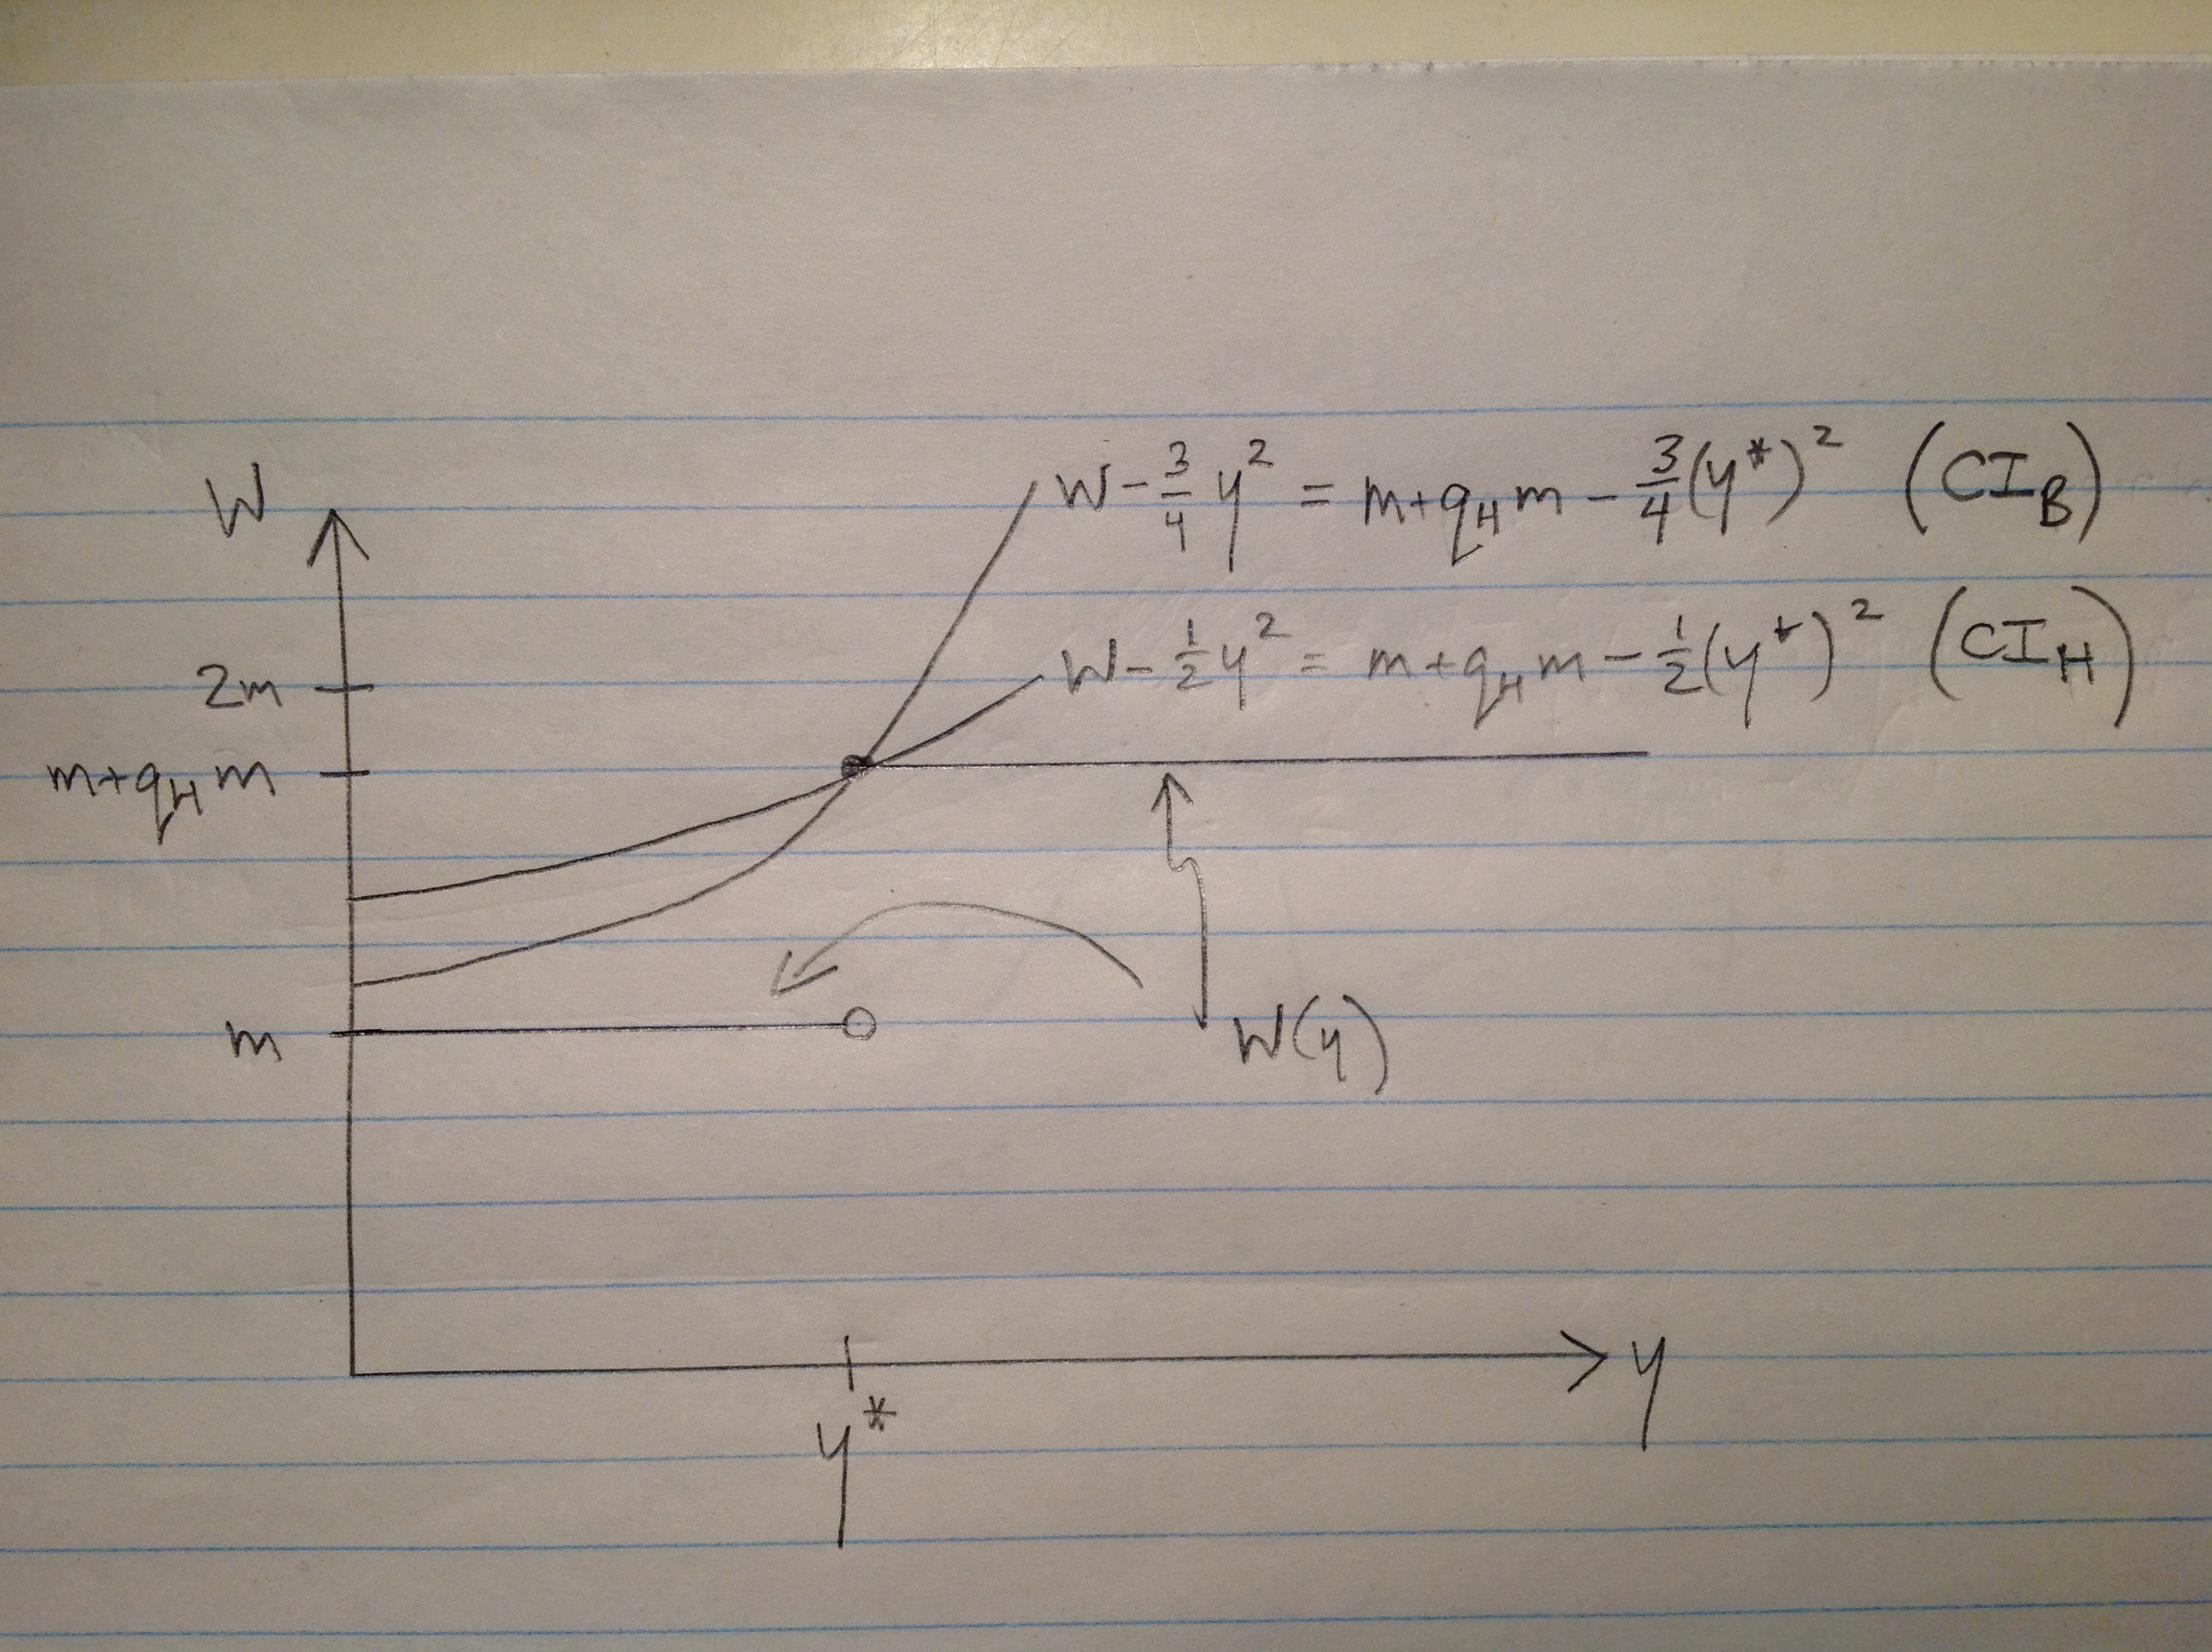 W
W - 3/4 y² = m + q_H m - 3/4 (y*)² (CI_B)
W - 1/2 y² = m + q_H m - 1/2 (y*)² (CI_H)
2m
m + q_H m
m
W(y)
y
y*